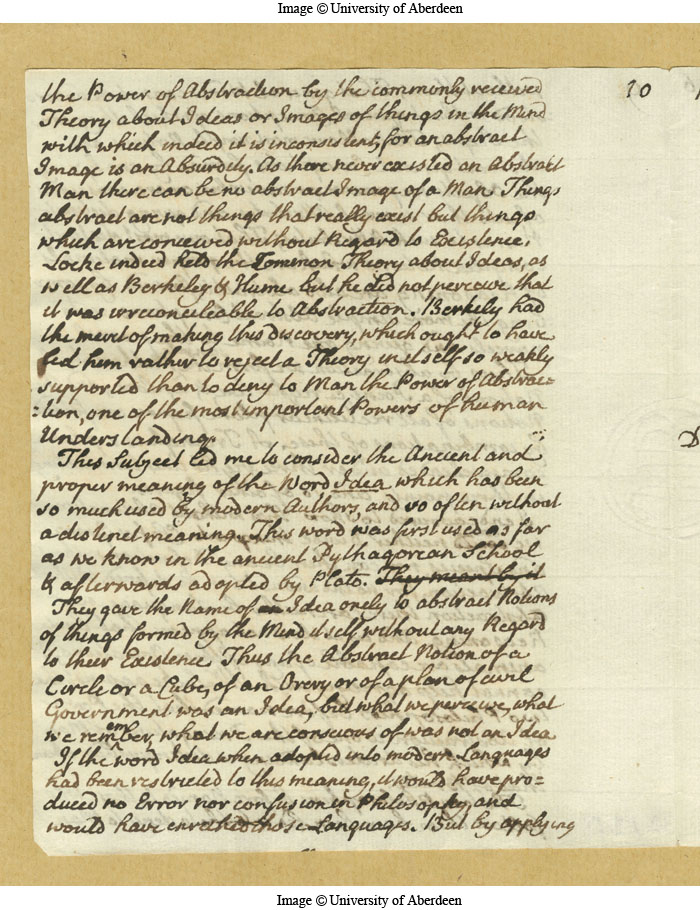 Image © University of Aberdeen
10
the Power of Abstraction by the commonly received
Theory about Ideas or Images of things in the Mind
with which indeed it is inconsistent, for an abstract
Image is an Absurdity. As there never existed an Abstract
Man there can be no abstract Image of a Man. Things
abstract are not things that really exist but things
which are conceived without Regard to Existence.
Locke indeed held the Common Theory about Ideas, as
well as Berkeley & Hume but he did not perceive that
it was irreconcileable to Abstraction. Berkely had
the merit of making this discovery, which ought to have
led him rather to reject a Theory in itself so weakly
supported than to deny to Man the Power of Abstrac=
=tion, one of the most important Powers of human
Understanding.
This Subject led me to consider the Ancient and
proper meaning of the Word Idea which has been
so much used by modern Authors, and so often without
a distinct meaning. This word was first used as far
as we know in the ancient Pythagorean School
& afterwards adopted by Plato. They meant by it
They gave the Name of an Idea onely to abstract Notions
of things formed by the Mind itself without any Regard
to their Existence. Thus the Abstract Notion of a
Circle or a Cube, of an Orery or of a plan of civil
Government was an Idea, but what we perceive, what
we remember, what we are conscious of was not an Idea
If the word Idea when adopted into modern Languages
had been restricted to this meaning, it would have pro=
duced no Error nor confusion in Philosophy, and
would have enriched those Languages. But by applying
D
Image © University of Aberdeen